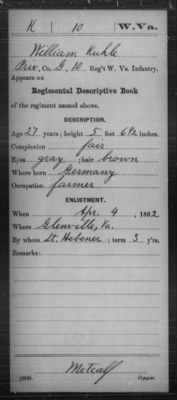 K | 10 | W. Va.
William Kuhle
Priv., Co. G, 10 Reg't W. Va. Infantry.
Appears on
Regimental Descriptive Book
of the regiment named above.
DESCRIPTION.
Age 27 years; height 5 feet 6 1/2 inches.
Complexion fair
Eyes gray; hair brown
Where born Germany
Occupation farmer
ENLISTMENT.
When Apr. 4, 1862
Where Glenville, Va.
By whom Lt. Hebener; term 3 y'rs.
Remarks:
Metcalf
Copyist.